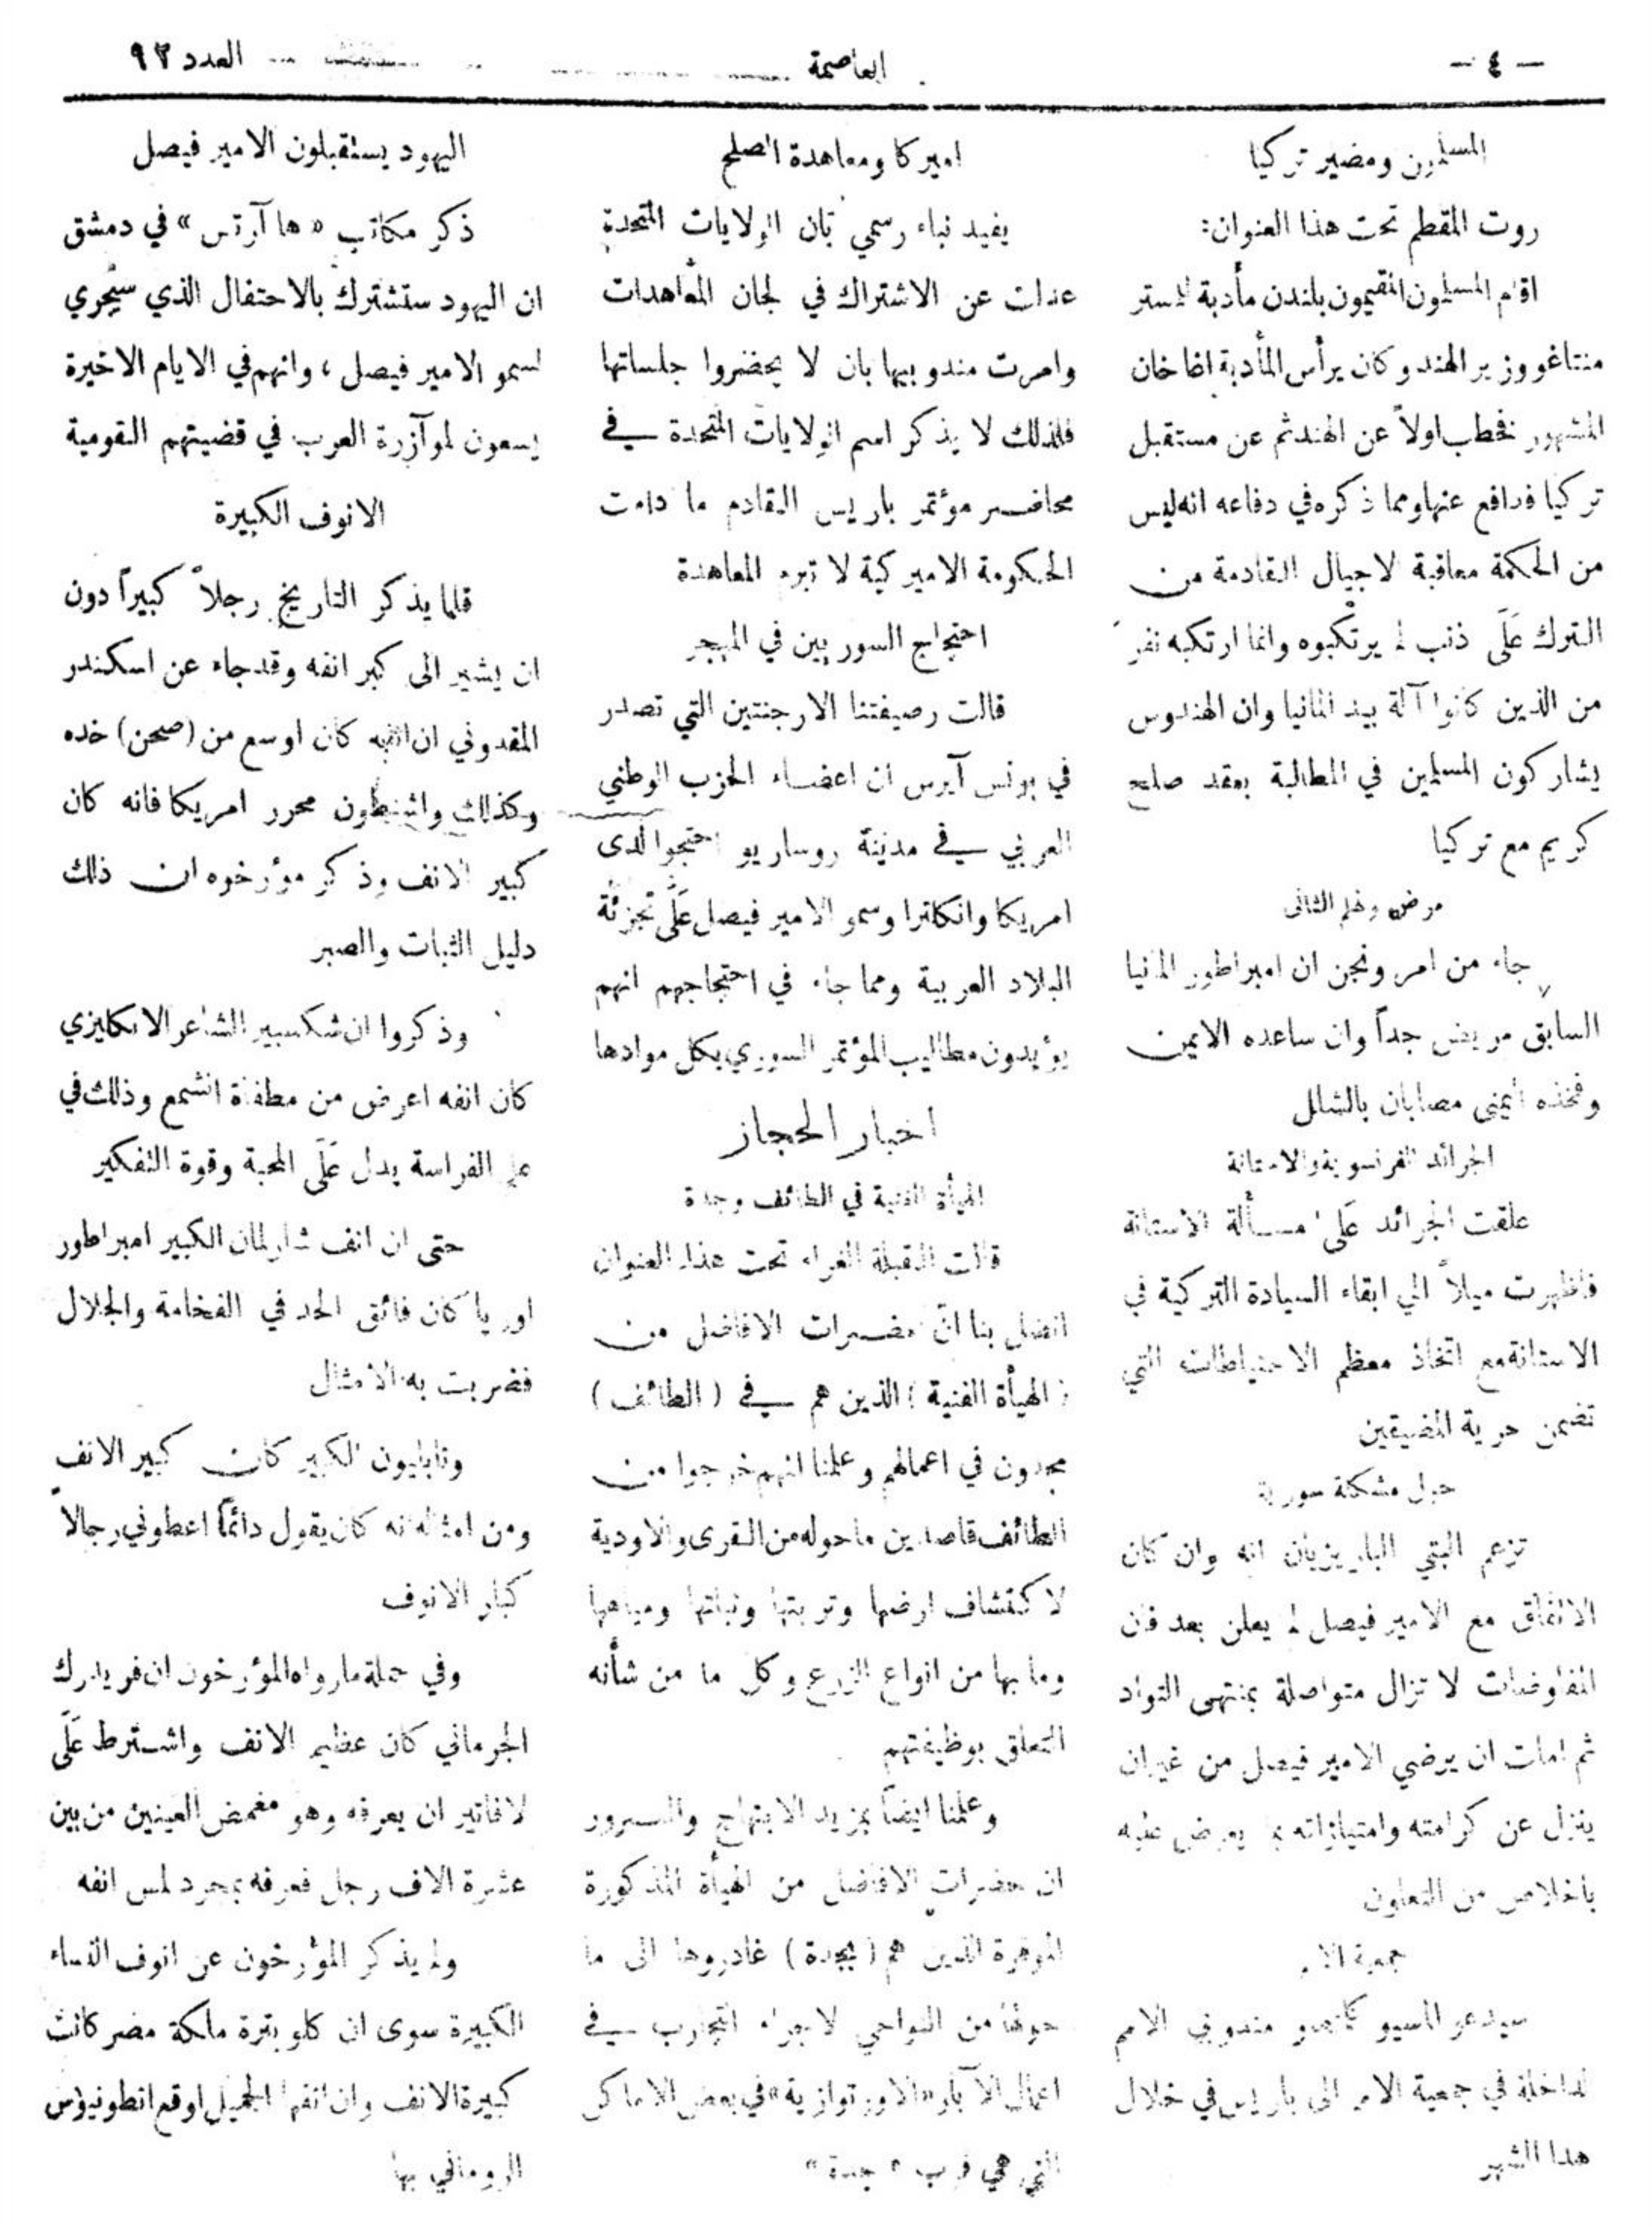 — ٤ —
العاصمة
العدد ٩٢
المسلمون ومصير تركيا
روت المقطم تحت هذا العنوان:
اقام المسلمون المقيمون بلندن مأدبة للمستر
منتاغو وزير الهند وكان يرأس المأدبة اغا خان
المشهور فخطب اولاً عن الهند ثم عن مستقبل
تركيا فدافع عنها ومما ذكره في دفاعه انه ليس
من الحكمة معاقبة الاجيال القادمة من
الترك عَلَى ذنب لم يرتكبوه وانما ارتكبه نفر
من الذين كانوا آلة بيد المانيا وان الهندوس
يشاركون المسلمين في المطالبة بعقد صلح
كريم مع تركيا
مرض ولهلم الثاني
جاء من امرونجن ان امبراطور المانيا
السابق مريض جداً وان ساعده الايمن
وفخذه اليمنى مصابان بالشلل
الجرائد الفرنسوية والاستانة
علقت الجرائد عَلَى مسألة الاستانة
فاظهرت ميلاً الى ابقاء السيادة التركية في
الاستانة مع اتخاذ معظم الاحتياطات التي
تضمن حرية المضيقين
حول مشكلة سورية
تزعم البتي الباريزيان انه وان كان
الاتفاق مع الامير فيصل لم يعلن بعد فان
المفاوضات لا تزال متواصلة بمنتهى التواد
ثم املت ان يرضي الامير فيصل من غير ان
ينزل عن كرامته وامتيازاته بما يعرض عليه
باخلاص من التعاون
جمعية الامم
سيدعو المسيو كليمنصو مندوبي الامم
الداخلة في جمعية الامم الى باريس في خلال
هذا الشهر
اميركا ومعاهدة الصلح
يفيد نباء رسمي بان الولايات المتحدة
عدلت عن الاشتراك في لجان المعاهدات
وامرت مندوبيها بان لا يحضروا جلساتها
فلذلك لا يذكر اسم الولايات المتحدة في
محاضر مؤتمر باريس القادم ما دامت
الحكومة الاميركية لا تبرم المعاهدة
احتجاج السوريين في المهجر
قالت رصيفتنا الارجنتين التي تصدر
في بونس آيرس ان اعضاء الحزب الوطني
العربي في مدينة روساريو احتجوا لدى
امريكا وانكلترا وسمو الامير فيصل عَلَى تجزئة
البلاد العربية ومما جاء في احتجاجهم انهم
يؤيدون مطاليب المؤتمر السوري بكل موادها
اخبار الحجاز
الهيأة الفنية في الطائف وجدة
قالت القبلة الغراء تحت هذا العنوان
اتصل بنا ان حضرات الافاضل من
( الهيأة الفنية ) الذين هم في ( الطائف )
مجدون في اعمالهم وعلمنا انهم خرجوا من
الطائف قاصدين ما حوله من القرى والاودية
لاكتشاف ارضها وتربتها ونباتها ومياهها
وما بها من انواع الزرع وكل ما من شأنه
التعلق بوظيفتهم
وعلمنا ايضاً بمزيد الابتهاج والسرور
ان حضرات الافاضل من الهيأة المذكورة
الموقرة الذين هم ( بجدة ) غادروها الى ما
حولها من النواحي لاجراء التجارب في
اعمال الآبار «الاورتوازية» في بعض الاماكن
التي هي قرب « جدة »
اليهود يستقبلون الامير فيصل
ذكر مكاتب «ها آرتس» في دمشق
ان اليهود ستشترك بالاحتفال الذي سيجري
لسمو الامير فيصل ، وانهم في الايام الاخيرة
يسعون لموآزرة العرب في قضيتهم القومية
الانوف الكبيرة
قلما يذكر التاريخ رجلاً كبيراً دون
ان يشير الى كبر انفه وقد جاء عن اسكندر
المقدوني ان انفه كان اوسع من (صحن) خده
وكذلك واشنطون محرر امريكا فانه كان
كبير الانف وذكر مؤرخوه ان ذلك
دليل الثبات والصبر
وذكروا ان شكسبير الشاعر الانكليزي
كان انفه اعرض من مطفأة الشمع وذلك في
علم الفراسة يدل عَلَى المحبة وقوة التفكير
حتى ان انف شارلمان الكبير امبراطور
اوربا كان فائق الحد في الفخامة والجلال
فضربت به الامثال
ونابليون الكبير كان كبير الانف
ومن امثاله انه كان يقول دائماً اعطوني رجالاً
كبار الانوف
وفي جملة ما رواه المؤرخون ان فريدرك
الجرماني كان عظيم الانف واشترط عَلَى
لافاتير ان يعرفه وهو مغمض العينين من بين
عشرة الاف رجل فعرفه بمجرد لمس انفه
ولم يذكر المؤرخون عن انوف النساء
الكبيرة سوى ان كلوبترة ملكة مصر كانت
كبيرة الانف وان انفها الجميل اوقع انطونيوس
الروماني بها